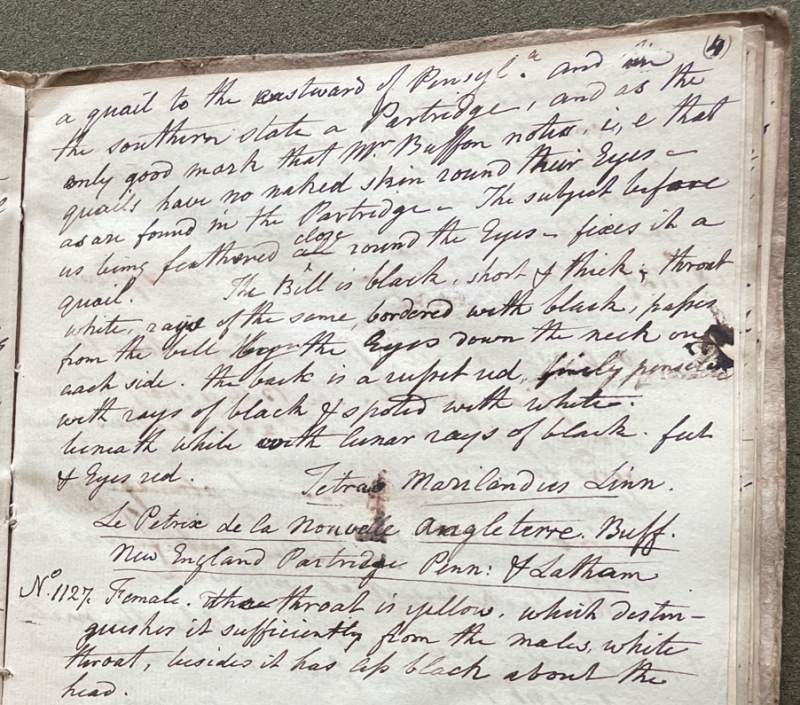 (4)
a quail to the eastward of Pensyl.a and in
the southern state a Partridge, and as the
only good mark that Mr Buffon notes, i, e that
quails have no naked skin round their Eyes –
as are found in the Partridge – The subject before
us being feathered close round the Eyes – fixes it a
quail. The Bill is black, short & thick, throat
white, rays of the same, bordered with black, passes
from the bell the Eyes down the neck on
each side. the back is a russet red, finely penseled
with rays of black & spoted with white.
beneath while with lunar rays of black. feet
& Eyes red. Tetrao Marilandus Linn.
Le Petrix de la Nouvelle Angleterre. Buff.
New England Partridge Penn: & Latham
No. 1127. Female. the throat is yellow, which destin–
guishes it sufficiently from the males, white
throat, besides it has less black about the
head.